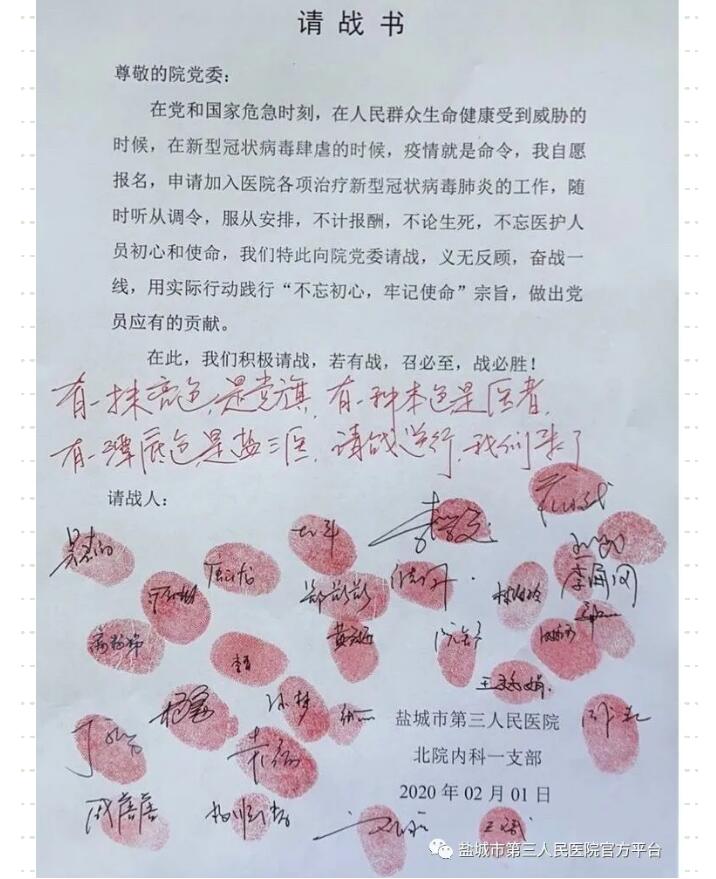 请战书
尊敬的院党委：
在党和国家危急时刻，在人民群众生命健康受到威胁的
时候，在新型冠状病毒肆虐的时候，疫情就是命令，我自愿
报名，申请加入医院各项治疗新型冠状病毒肺炎的工作，随
时听从调令，服从安排，不计报酬，不论生死，不忘医护人
员初心和使命，我们特此向院党委请战，义无反顾，奋战一
线，用实际行动践行“不忘初心，牢记使命”宗旨，做出党
员应有的贡献。
在此，我们积极请战，若有战，召必至，战必胜！
有一抹亮色是党旗，有一种本色是医者，
有一种底色是盐三医，请战逆行，我们来了
请战人：
郑彭彭
李涓网
王秀娟
孙梦
盐城市第三人民医院
北院内科一支部
2020年02月01日
戚蓓蓓
王斌
盐城市第三人民医院官方平台